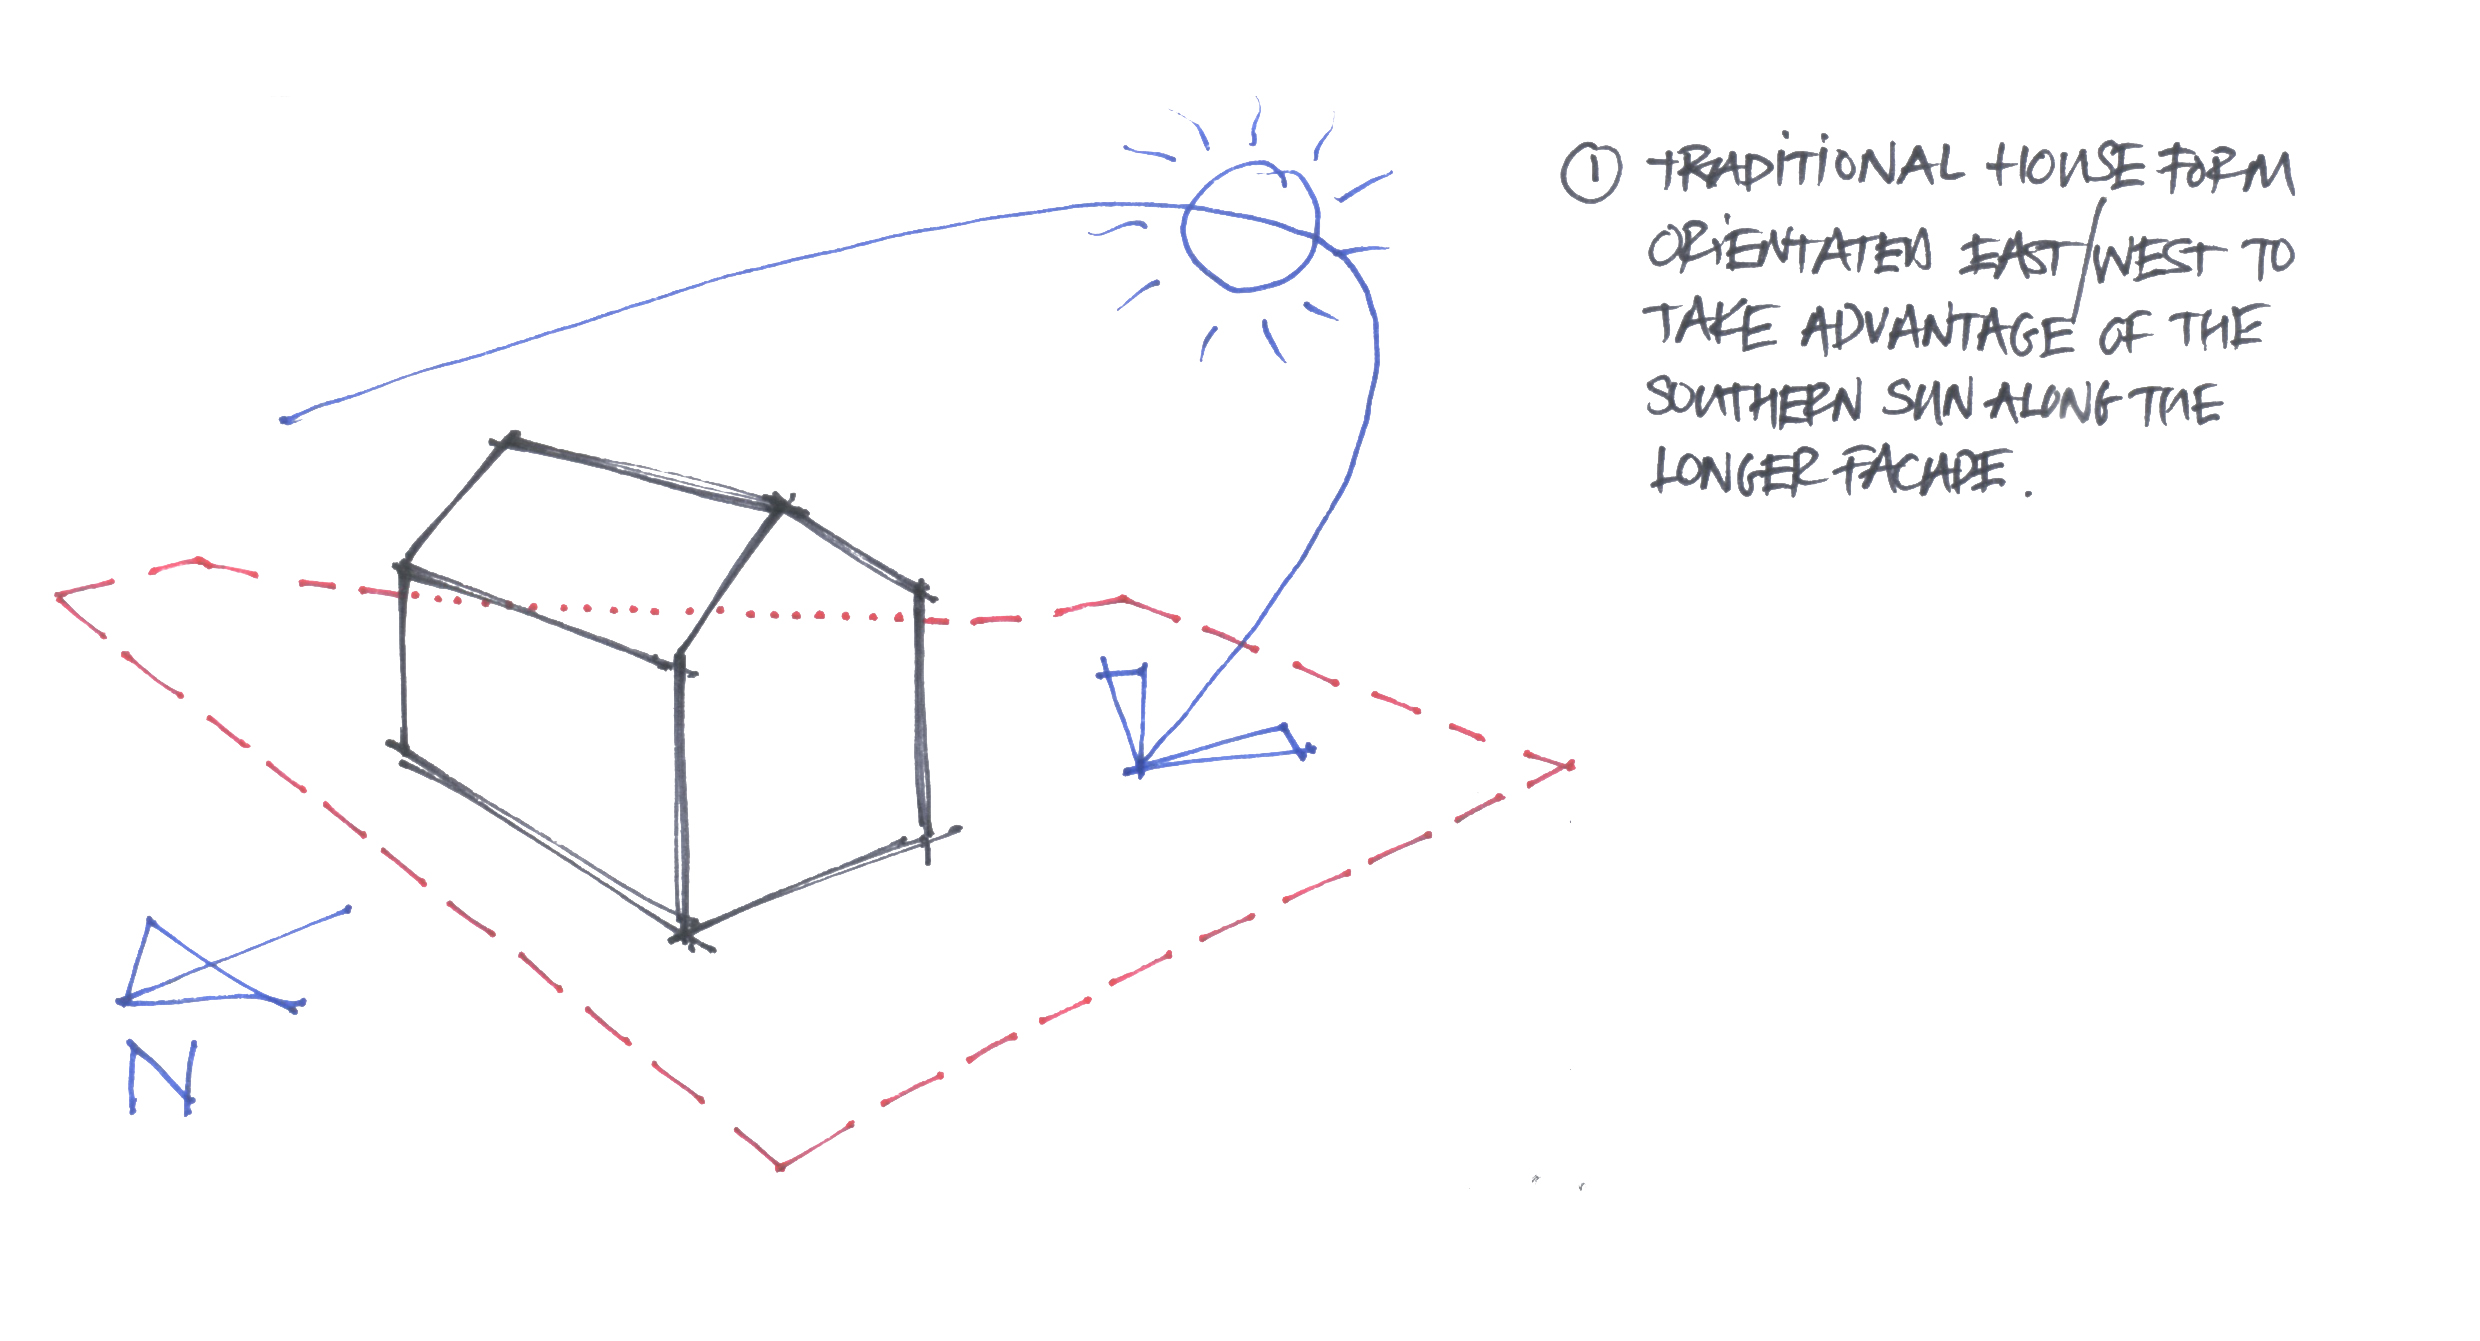 ① TRADITIONAL HOUSE FORM
ORIENTATED EAST/WEST TO
TAKE ADVANTAGE OF THE
SOUTHERN SUN ALONG THE
LONGER FACADE.
N